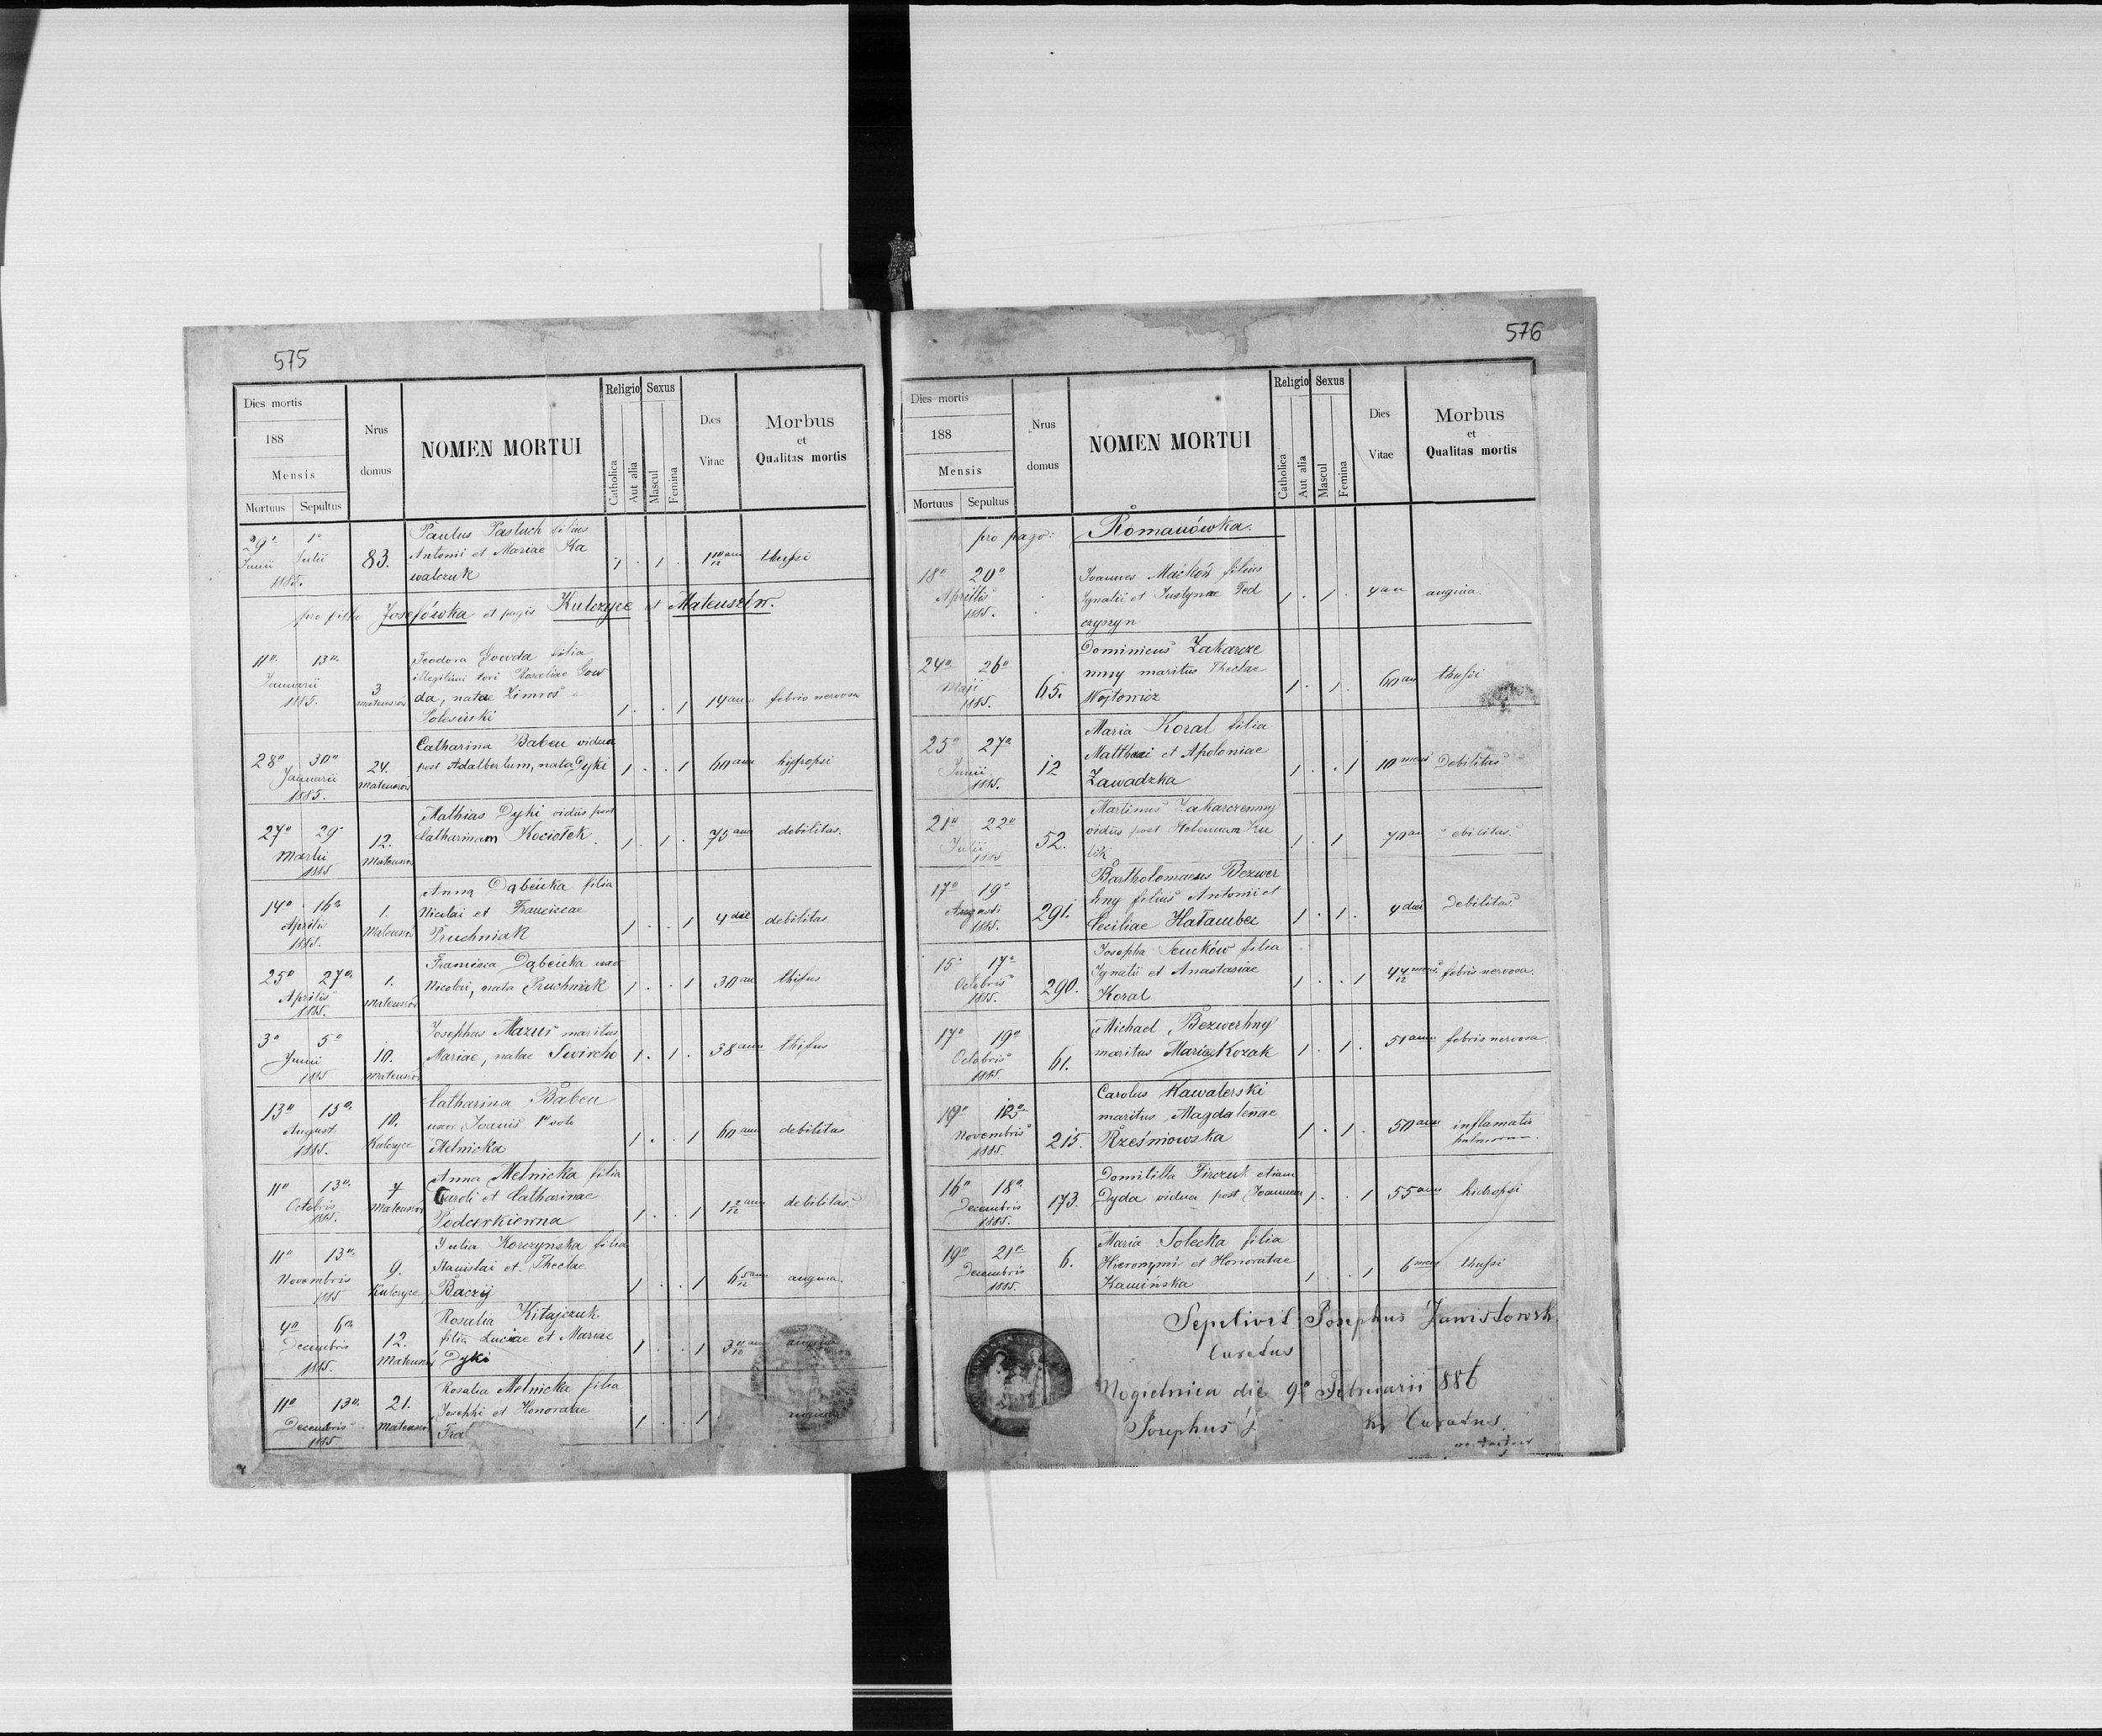 575
Dies mortis
188
Mensis
Mortuus Sepultus
Nrus domus
NOMEN MORTUI
Religio Sexus
Catholica Aut alia Mascul Femina
Dies Vitae
Morbus
et
Qualitas mortis
29º 1º
Junii Julii
1885.
83.
Paulus Pastuch filius
Antonii et Mariae Ka
walczuk
1 . 1 .
thussi
pro filia Josefówka et pagis Kulczyce et Mateuszów.
11º 13º
Januarii
1885.
3
Mateuszów
Teodora Gowda filia
illegitimi tori Rosaliae Gow
da, natae Zimroś
1 . . 1
14 ann
febris nervosa
28º 30º
Januarii
1885.
24.
Mateuszów
Catharina Babeu vidua
post Adalbertum, nata Dyki
1 . . 1
60 ann
27º 29º
Martii
1885
12.
Mateuszów
Mathias Dyki vidus post
Catharinam Kociołek.
1 . 1 .
75 ann
debilitas.
14º 16º
Aprilis
1885.
1.
Mateuszów
Anna Dąbeńka filia
Nicolai et Franciscae
Pruchniak
1 . . 1
4 die
debilitas
25º 27º
Aprilis
1885.
1.
Mateuszów
Francisca Dąbeńka uxor
Nicolai, nata Pruchniak
1 . . 1
30 an
thifus
3º 5º
Junii
1885
10.
Mateuszów
Josephus Mazur maritus
Mariae, natae Swircho
1 . 1 .
38 ann
thifus
13º 15º
August
1885.
10.
Kulczyce
Catharina Babeu
uxor Joanis 1º voto
Melnicka
1 . . 1
60 ann
debilitas
11º 13º
Octobris
1885.
7
Mateuszów
Anna Melnicka filia
Caroli et Catharinae
Podcerkiewna
1 . . 1
1 2/12 ann
debilitas
11º 13º
Novembris
1885
9.
Kulczyce
Julia Korczyńska filia
Stanislai et Theclae
Baczij
1 . . 1
6 5/12 ann
angina.
4º 6º
Decembris
1885.
12.
Mateuszów
Rosalia Kitajczuk
filia Lucae et Mariae
Dyki
1 . . 1
angina
11º 13º
Decembris
1885
21.
Mateuszów
Rosalia Melnicka filia
Josephi et Honoratae
Fra
1 . . 1
angina
576
Dies mortis
188
Mensis
Mortuus Sepultus
Nrus domus
NOMEN MORTUI
Religio Sexus
Catholica Aut alia Mascul Femina
Dies Vitae
Morbus
et
Qualitas mortis
pro pago: Romanówka.
18º 20º
Aprilis
1885.
Joannes Maćków filius
Ignatii et Justynae Fed
czyszyn
1 . 1 .
4 an
angina.
24º 26º
Maji
1885.
65.
Dominicus Zaharcze
nny maritus Theclae
Wojtowicz
1 . 1 .
60 an
thussi
25º 27º
Junii
1885.
12
Maria Koral filia
Matthaei et Apoloniae
Zawadzka
1 . . 1
10 mens
Debilitas
21º 22º
Julii
1885
52.
Martinus Zaharczenny
vidus post Helenam Ku
lik
1 . 1
70 an
ebilitas.
17º 19º
Augusti
1885.
291.
Bartholomaeus Bezwer
hny filius Antonii et
Ceciliae Hałambec
1 . 1 .
4 dies
Debilitas
15º 17º
Octobris
1885.
290.
Josepha Senćków filia
Ignatii et Anastasiae
Koral
1 . . 1
febris nervosa.
17º 19º
Octobris
1885.
61.
Michael Bezwerhny
maritus Mariae Kozak
1 . 1 .
51 ann
febris nervosa
Novembris
1885.
215.
Carolus Kawalerski
maritus Magdalenae
Rześniowska
1 . 1 .
50 ann
inflamatis
pulmonum.
16º 18º
Decembris
1885.
173.
Domitilla Firczuk etiam
Dyda vidua post Joannem
1 . . 1
55 ann
hidropsi
19º 21º
Decembris
1885.
6.
Maria Solecka filia
Hieronymi et Honoratae
Kamińska
1 . . 1
6 mens
thussi
Sepelivit Josephus Zawisłowsk
Curatus
Mogielnica die 9º Februarii 886
Josephus Curatus